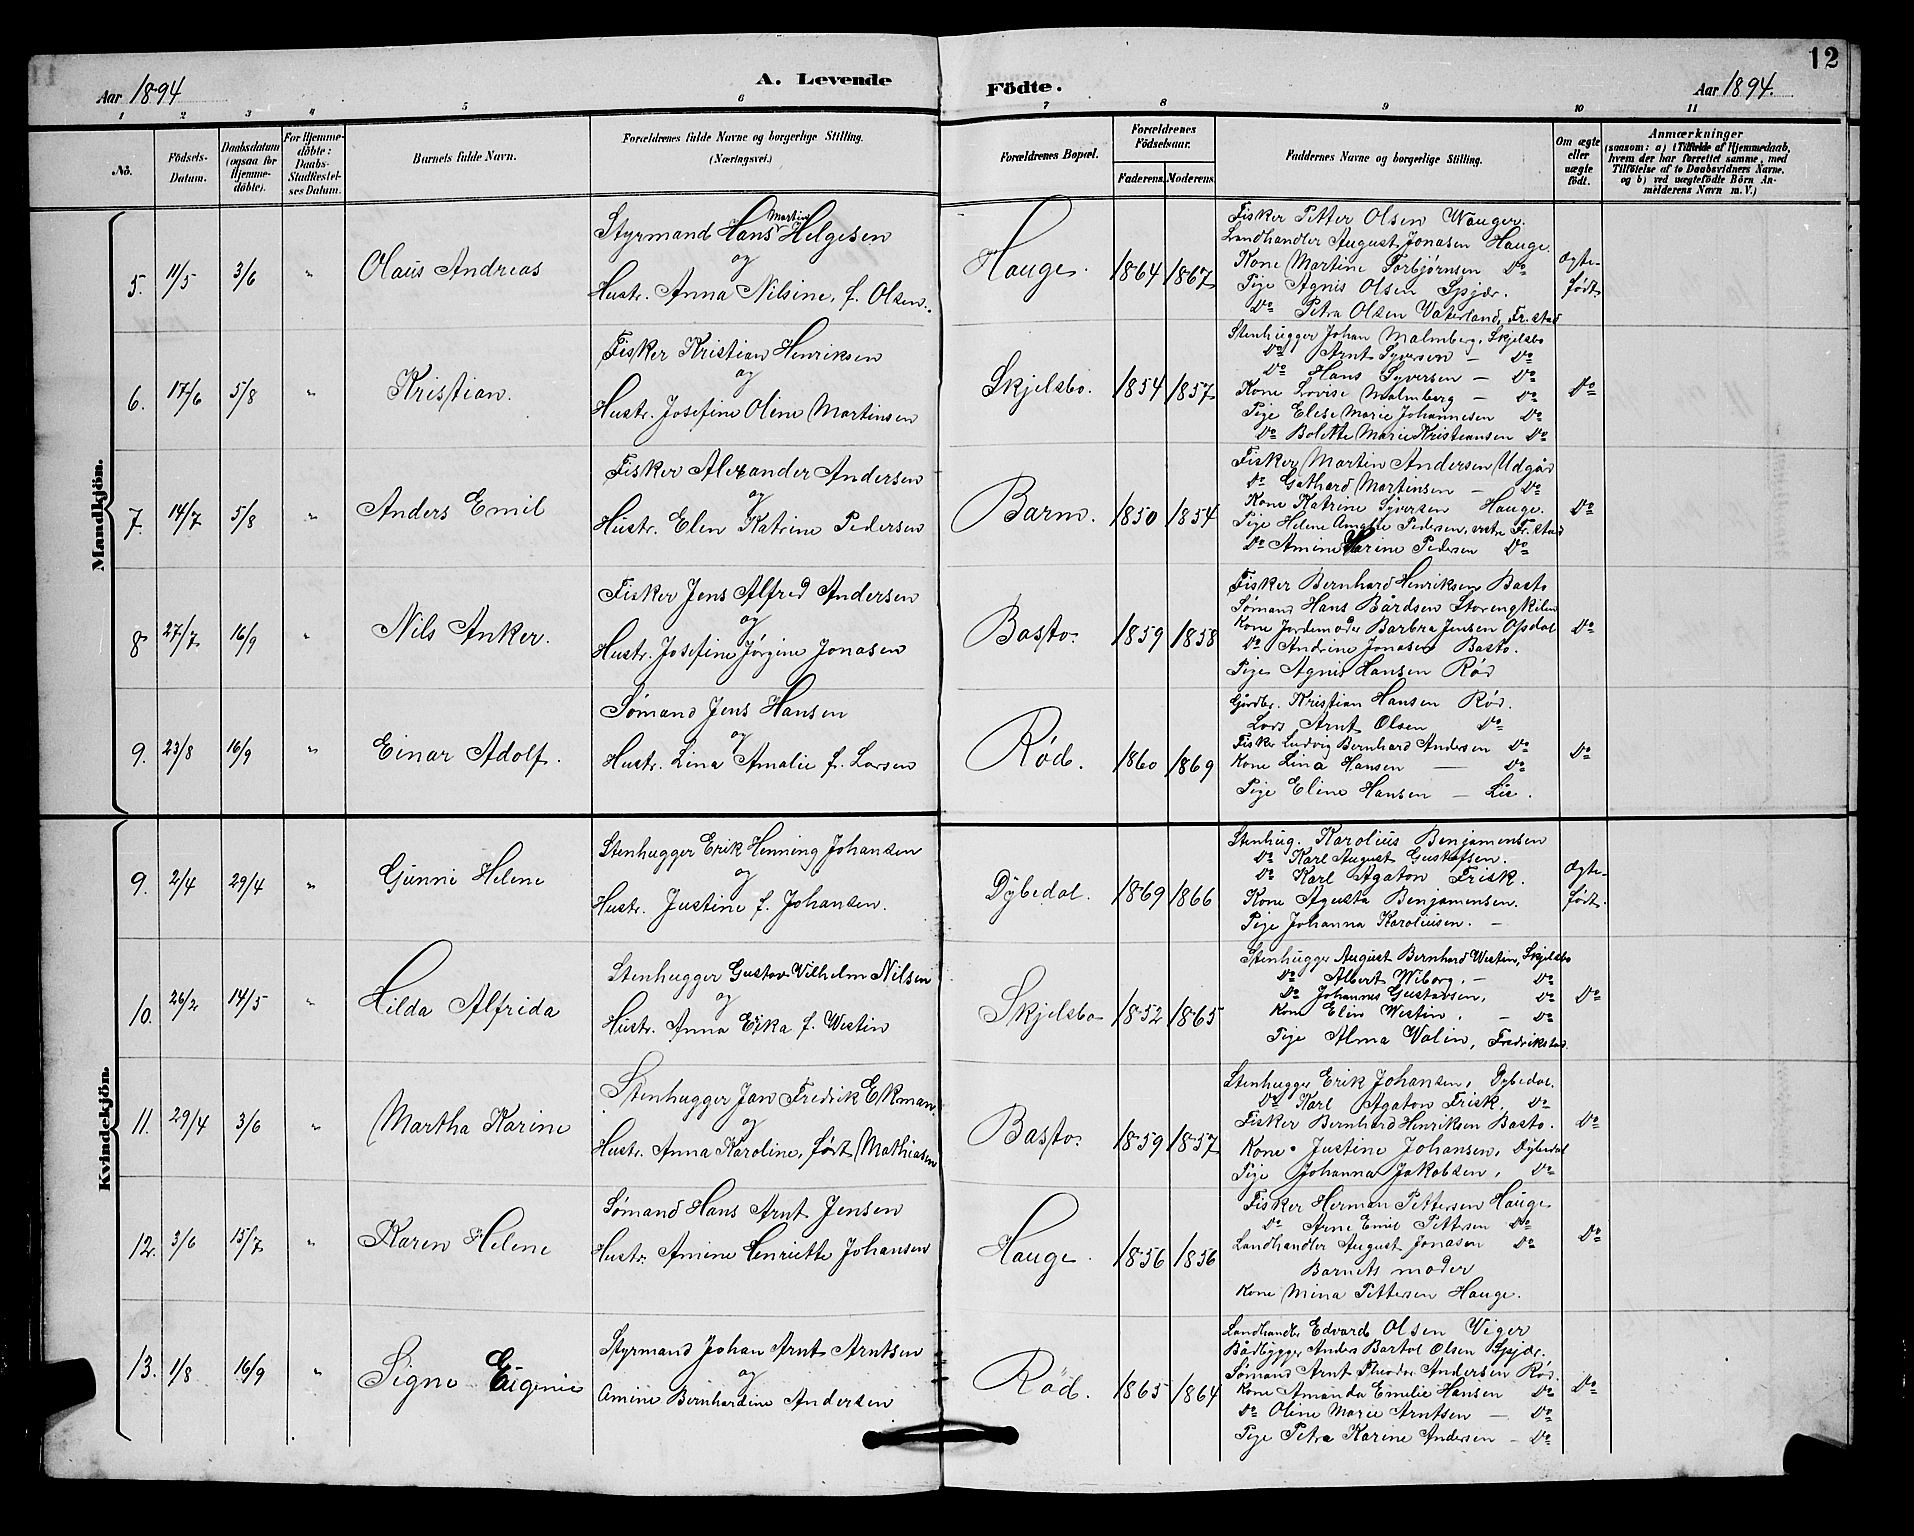 12
Aar 1894
A. Levende Födte.
Aar 1894.
1 2 3 4 5 6 7 8 9 10 11
No.
Födsels-Datum.
Daabsdatum (ogsaa for Hjemme-döbte).
For Hjemme-döbte: Daabs-Stadfæstel-ses Datum.
Barnets fulde Navn.
Forældrenes fulde Navne og borgerlige Stilling. (Næringsvei.)
Forældrenes Bopæl.
Forældrenes Födselsaar.
Faderens. Moderens.
Faddernes Navne og borgerlige Stilling.
Om ægte eller uægte födt.
Anmærkninger
(saasom: a) i Tilfælde af Hjemmedaab, hvem der har forrettet samme, med Tilföielse af to Daabsvidners Navne, og b) ved uægtefödte Börn An-melderens Navn m. V.)
Mandkjön.
5. 11/5 3/6 " Olaus Andreas
Styrmand Hans Martin Helgesen
og
Hustr. Anna Nilsine, f. Olsen.
Hauge. 1864 1867
Fisker Petter Olsen Wauger.
Landhandler August Jonasen Hauge.
Kone Martine Torbjørnsen Do
Pige Agnis Olsen Spjær.
Do Petra Olsen Vaterland, Fr.stad
Ægte-født
6. 17/6 5/8 " Kristian.
Fisker Kristian Henriksen
og
Hustr. Josefine Oline Martinsen
Skjelsbo. 1854 1857
Stenhugger Johan Malmberg, Skjelsbo
Do Arnt Syversen - Do
Do Hans Syversen - Do
Kone Lovise Malmberg - Do
Pige Elise Marie Johannesen Do
Do Bolette Marie Kristiansen Do
Do
7. 14/7 5/8 " Anders Emil
Fisker Alexander Andersen
og
Hustr. Elen Katrine Pedersen
Barm. 1850 1854
Fisker Martin Andersen Udgår
Do Gothard Martinsen - Do
Kone Katrine Syversen Hauge.
Pige Helene Amalie Pedersen, vestre Fr.stad
Do Amine Karine Pedersen Do
Do
8 27/7 16/9 " Nils Anker.
Fisker Jens Alfred Andersen
og
Hustr. Josefine Jørgine Jonasen
Basto. 1859 1858
Fisker Bernhard Henriksen Basto
Sømand Hans Bårdsen Storengkilen
Kone Jordemoder Barbra Jensen Opdal
Do Andrine Jonasen Basto.
Pige Agnis Hansen Rød
Do
9. 23/8 16/9 " Einar Adolf.
Sømand Jens Hansen
og
Hustr. Lina Amalie f. Larsen
Rød. 1860 1869
Gårdbr. Kristian Hansen Rød.
Lods Arnt Olsen Do
Fisker Ludvig Bernhard Andersen Do
Kone Lina Hansen - Do
Pige Eline Hansen - Lie.
Do
Kvindekjön.
9. 2/4 29/4 " Gunni Helene
Stenhugger Erik Henning Johansen
og
Hustr. Justine f. Johansen.
Dybedal. 1869 1866
Stenhug. Karolius Benjamensen
Do Karl August Gustafsen.
Do Karl Agaton Frisk.
Kone Agusta Benjamensen.
Pige Johanna Karoliusen. -
Ægte-født.
10. 26/2 14/5 " Hilda Alfrida
Stenhugger Gustav Vilhelm Nilsen
og
Hustr. Anna Erika f. Westin
Skjelsbo 1852 1865
Stenhugger August Bernhard Westin, Skjelsbo
Do Albert Wiborg, - Do
Do Johannes Gustavsen, Do
Kone Elin Westin, - Do
Pige Alma Walin, Fredrikstad.
Do
11. 29/4 3/6 " Martha Karine
Stenhugger Jan Fredrik Ekman.
og
Hustr. Anna Karoline, født Mathiasen
Basto. 1859 1857
Stenhugger Erik Johansen, Dybedal.
Do Karl Agaton Frisk. Do
Fisker Bernhard Henriksen Basto.
Kone Justine Johansen, Dybedal
Pige Johanna Jakobsen, Do
Do
12. 3/6 15/7 " Karen Helene
Sømand Hans Arnt Jensen
Hustr. Amine Henriette Johansen
Hauge. 1856 1856
Fisker Herman Pettersen Hauge
Do Arne Emil Pettersen Do
Landhandler August Jonasen Do
Barnets moder
Kone Mina Pettersen Hauge.
Do
13. 1/8 16/9 " Signe Eugenie
Styrmand Johan Arnt Arntsen
og
Amine Bernhardine Andersen
Rød. 1865 1864
Landhandler Edvard Olsen Viger
Bådbygger Anders Bartol Olsen Spjær.
Sømand Arnt Theodor Andersen Rød.
Kone Amanda Emelie Hansen Do
Do Oline Marie Arntsen - Do
Pige Petra Karine Andersen - Do
Do